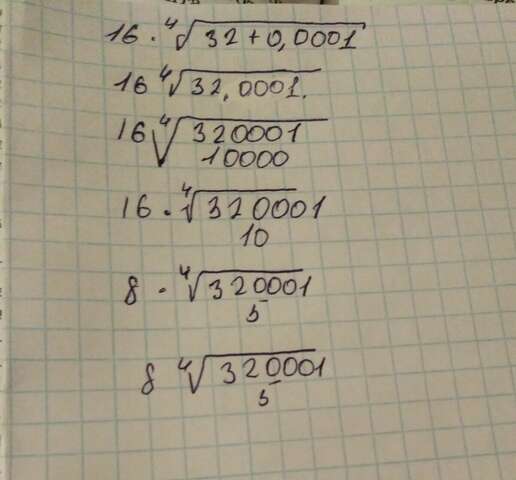 16 · ⁴√32+0,0001
16 ⁴√32,0001.
16 ⁴√320001
10000
16 · ⁴√320001
10
8 · ⁴√320001
5
8 ⁴√320001
5